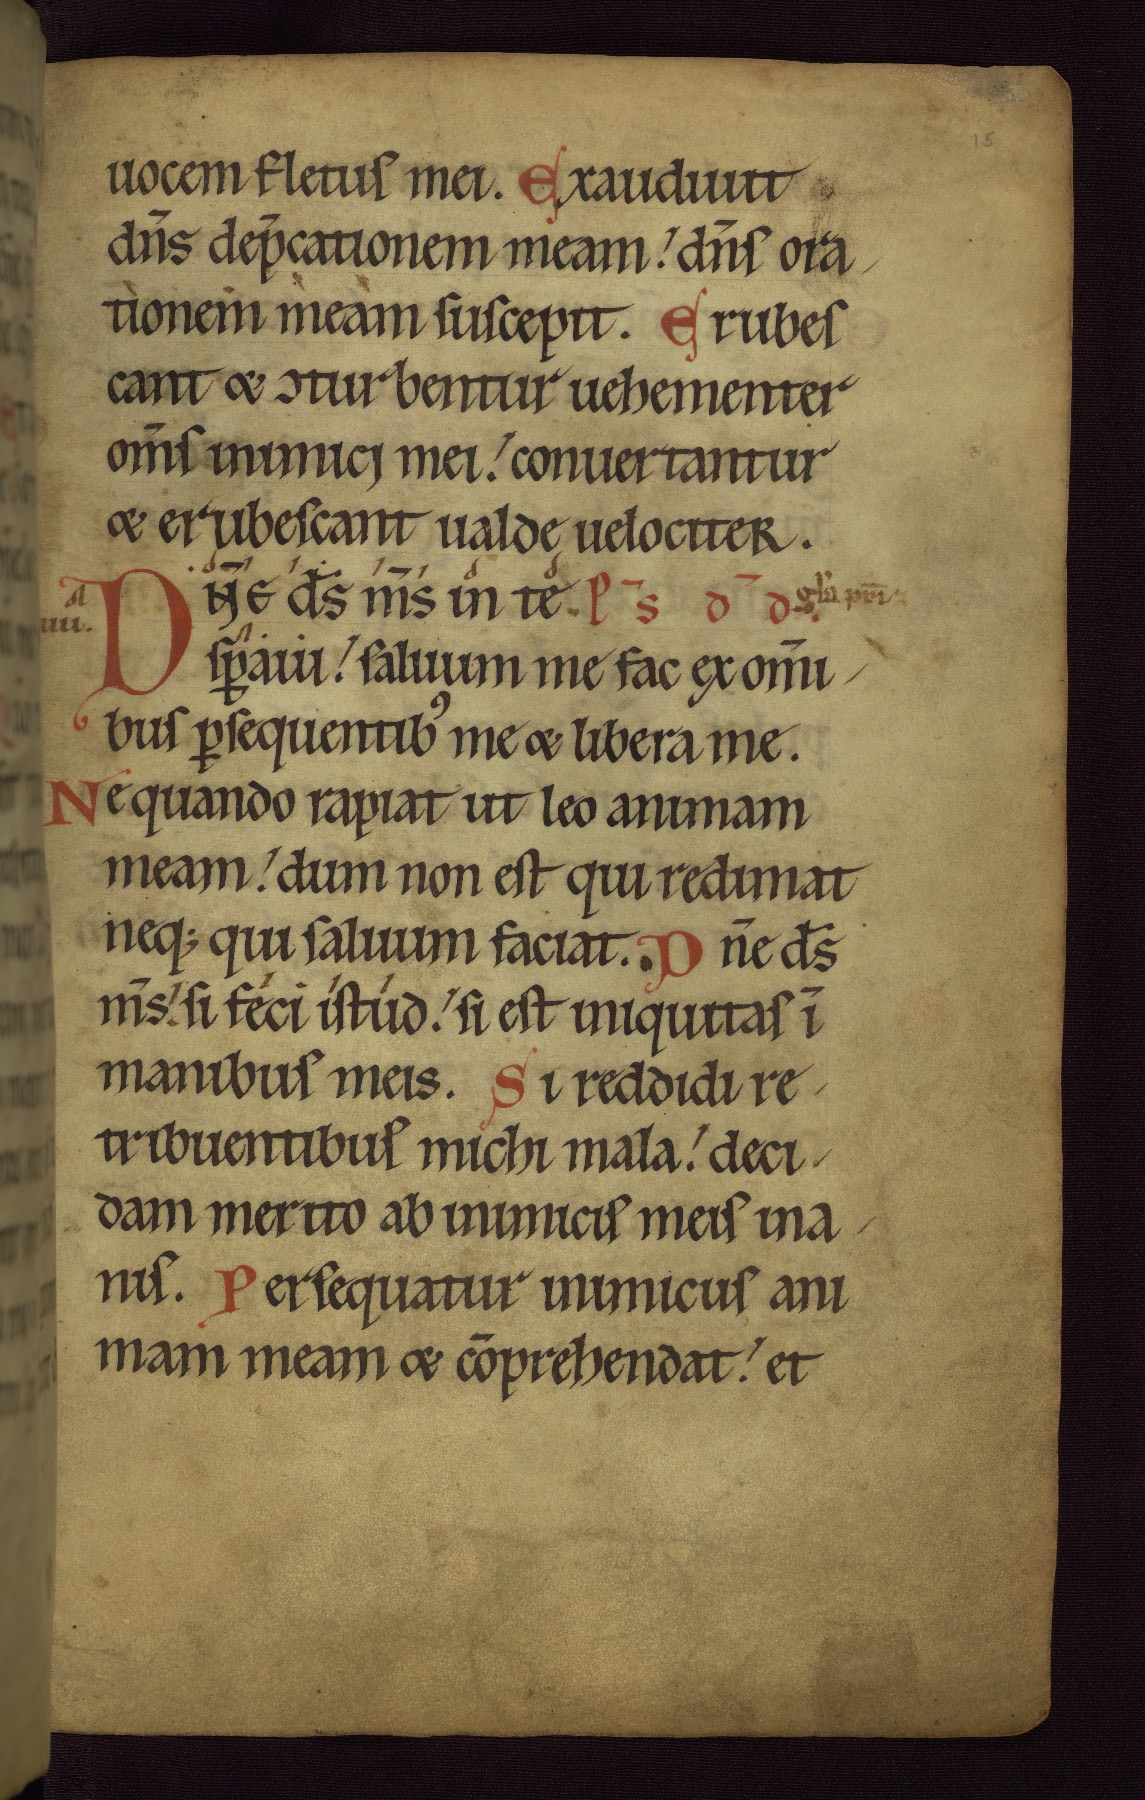 15
uocem fletus mei. Exaudiuit
dn̄s dep̄cationem meam! dn̄s ora
tionem meam suscepit. Erubes
cant & ɔturbentur uehementer
om̄s inimicj mei! conuertantur
& erubescant ualde uelociter.
DN̄E d̄s m̄s in te p̄s d̄d gl̄a pr̄i
iiii.
sp̲aui! saluum me fac ex om̄i
bus p̲sequentibꝰ me & libera me.
Nequando rapiat ut leo animam
meam! dum non est qui redimat
neq; qui saluum faciat. D n̄e d̄s
m̄s! si feci istud! si est iniquitas ī
manibus meis. Si reddidi re
tribuentibus michi mala! deci
dam merito ab inimicis meis ina
nis. Persequatur inimicus ani
mam meam & cōprehendat! et